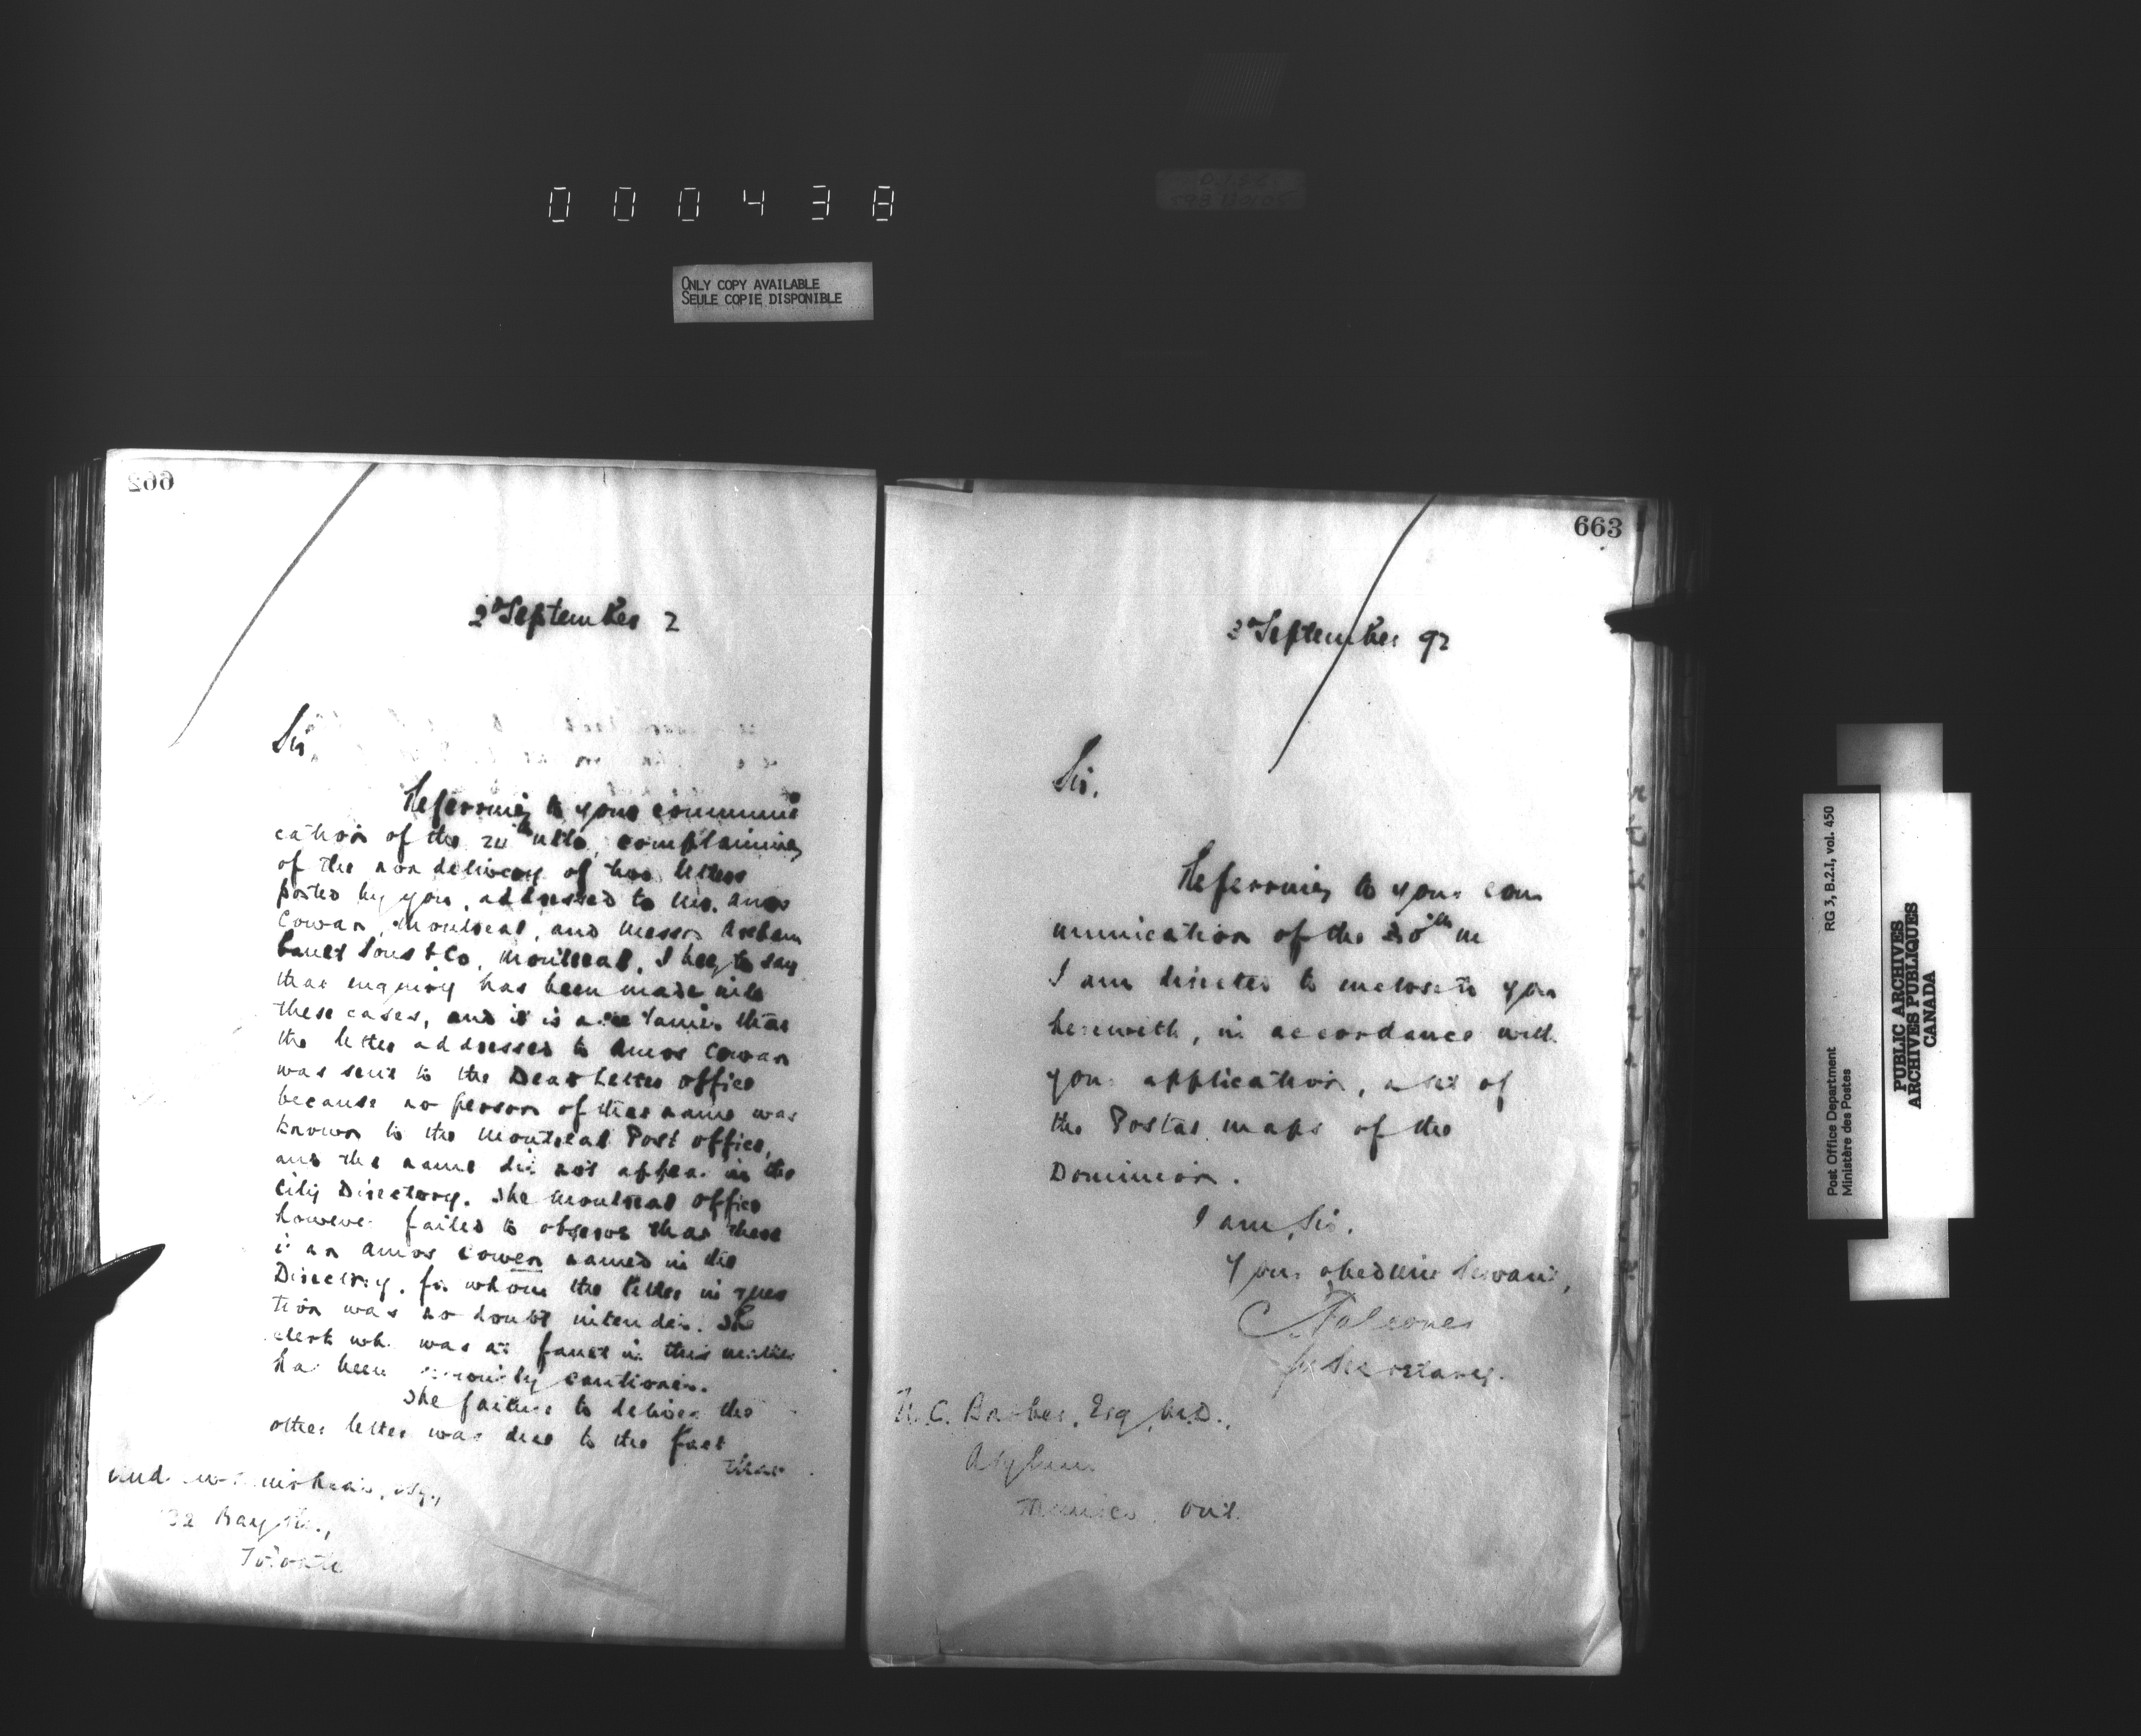 000438
ONLY COPY AVAILABLE
SEULE COPIE DISPONIBLE
662
2d September 2
Sir,
Referring to your communi
cation of the ulto, complaining
of the non delivery of two letters
posted by you, addressed to Mr. Amos
Cowan, Montreal, and Messrs Archam
bault Sons & Co, Montreal, I beg to say
that enquiry has been made into
these cases, and it is ascertained that
the letter addressed to Amos Cowan
was sent to the Dead Letter Office
because no person of that name was
known to the Montreal Post Office,
and the name did not appear in the
City Directory. The Montreal Office
however failed to observe that there
is an Amos Cowen named in the
Directory, for whom the letter in ques
tion was no doubt intended. The
clerk who was at fault in this matter
has been seriously cautioned.
The failure to deliver the
other letter was due to the fact
that
Esq.,
32 Bay St.,
Toronto
663
2d September 92
Sir,
Referring to your com
munication of the 30th
I am directed to enclose to you
herewith, in accordance with
your application, a set of
the Postal maps of the
Dominion.
I am, Sir,
Your obedient Servant,
for Secretary.
N. C. Barber, Esq., M.D.,
Asylum
Mimico Ont.
Post Office Department
Ministère des Postes
RG 3, B.2.I, vol. 450
PUBLIC ARCHIVES
ARCHIVES PUBLIQUES
CANADA